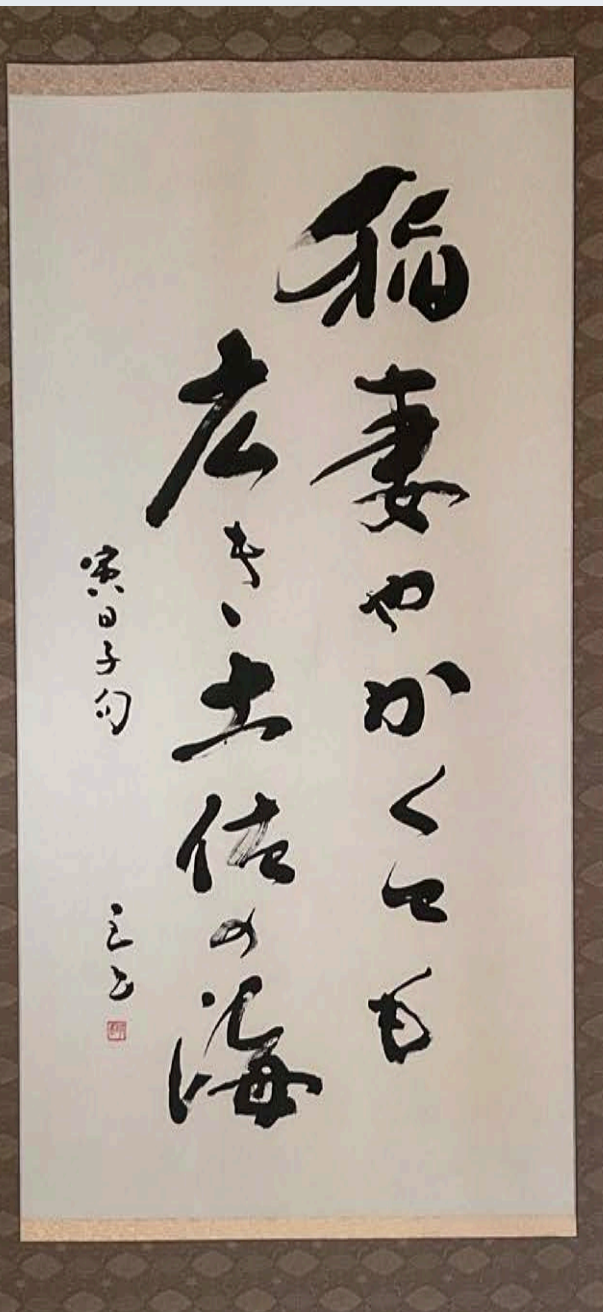 稲妻やかくても
広き土佐の海
寅日子句